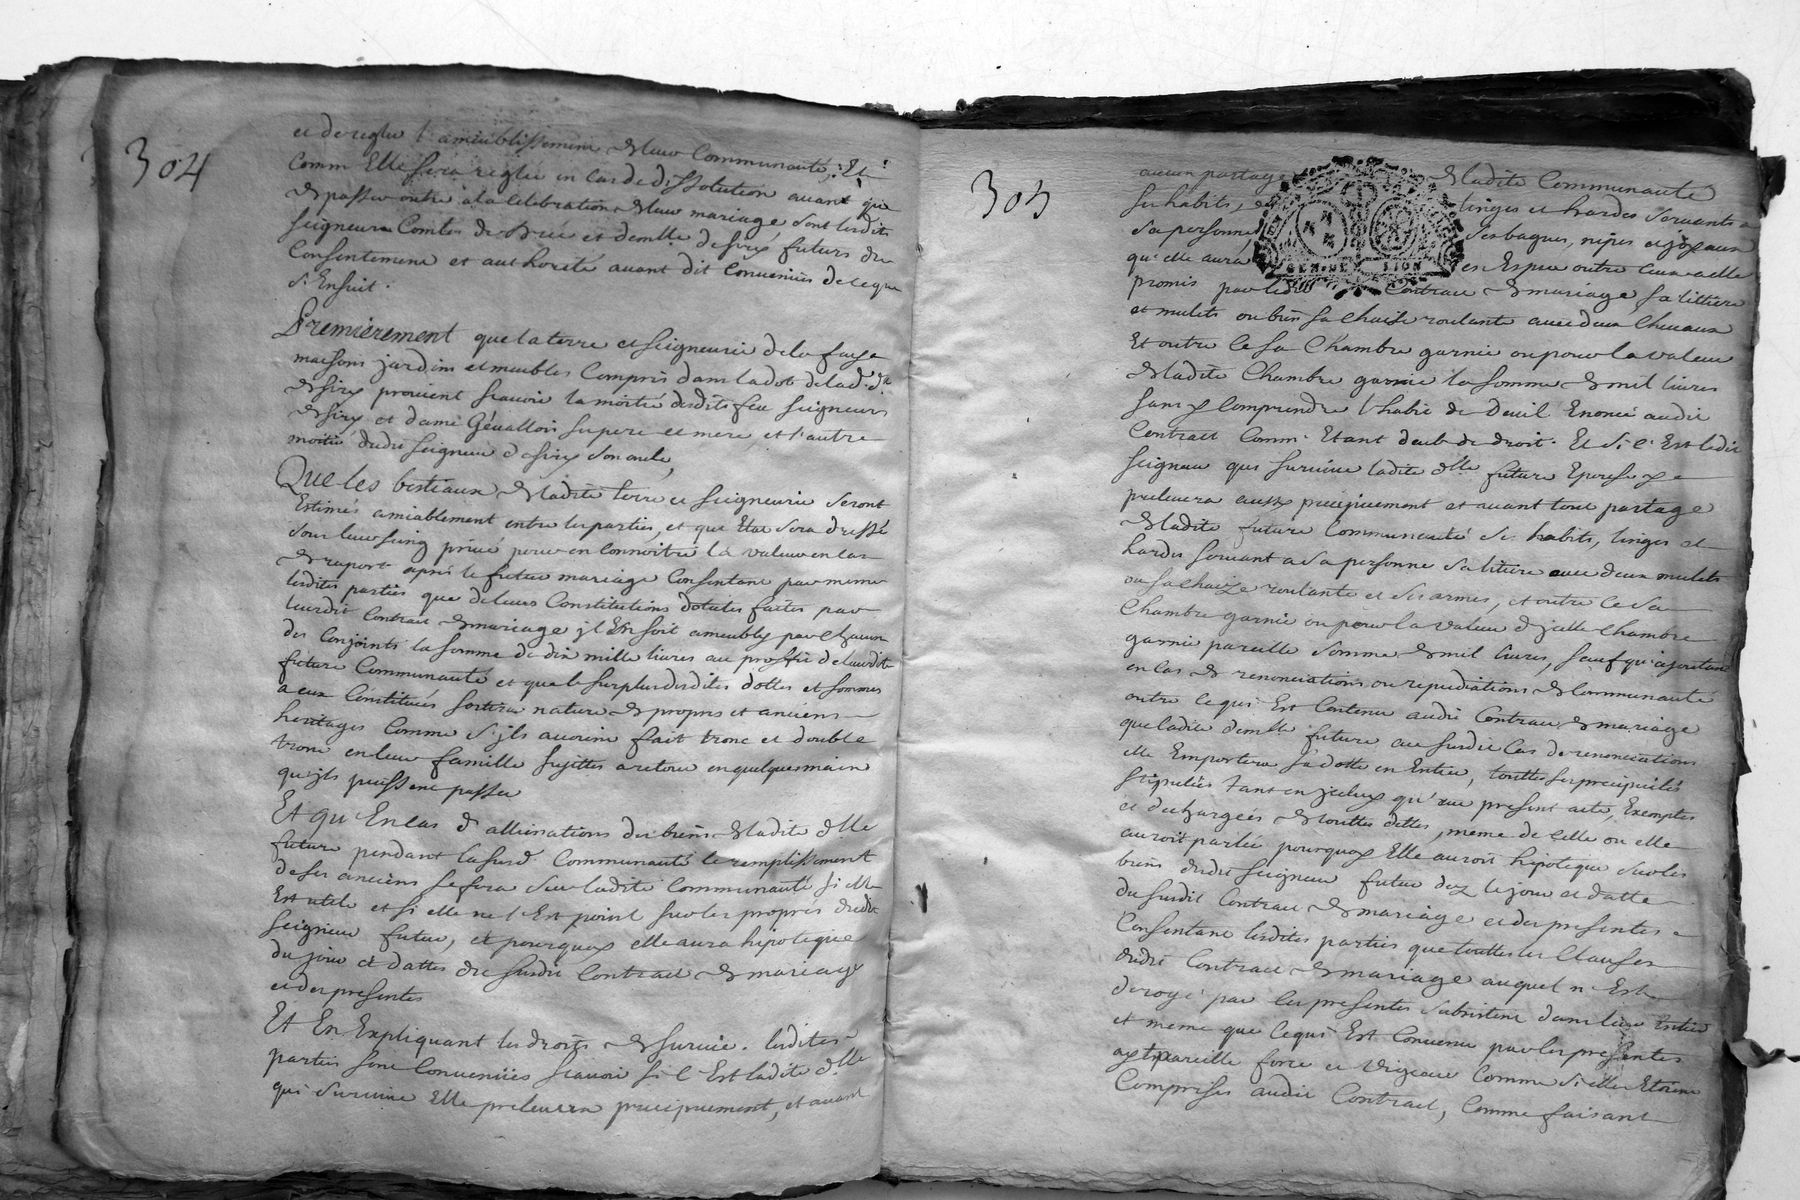 304
et de regler l'ameublissement de leur Communauté, Et
Comm Elle sera reglée en Cas de dissolution avant que
de passer outre à la Celebration de leur mariage, sont lesdits
seigneurs Comtes de et demlle de sirÿ futurs du
Consentement et authorité avant dit Convenües de ce que
s'Ensuit.
Premierement que la terre et seigneurie de la faye
maisons jardins et meubles Compris dans la dot de lad. dlle
de sirÿ provient sçavoir la moitié desdits feu seigneurs
de sirÿ et dame Gévallois ses pere et mere, et l'autre
moitié dudit seigneur de sirÿ son oncle,
Que les bestiaux de ladite terre et seigneurie seront
Estimés amiablement entre les parties, et que Etat sera dressé
sous leur seing privé pour en Connoitre la valeur en Cas
de raport après le futur mariage Consentant par meme
lesdites parties que de leurs Constitutions dotales faites par
leurdit Contract de mariage jl En soit ameubly par chacun
des Conjoints la somme de dix mille livres au proffit de laditte
future Communauté et que le surplus desdites dottes et sommes
a eux Constituées sortira nature de propres et anciens
heritages Comme s'jls avoient fait tronc et double
tronc en leur famille sujettes a retour en quelques main
qu'jls puissent passer
Et qu'En cas d'allienations des biens de ladite dlle
future pendant la susd. Communauté le remplissement
de ses anciens se fera sur ladite Communauté si elle
Est utile et si elle ne l'Est point sur les propres dudit
seigneur futur, et pourquoy elle aura hipoteque
du jour et dattes du susdit Contract de mariage
et des presentes
Et En Expliquant les droits de survie. lesdites
parties sont Convenües sçavoir si C'Est ladite dlle
qui survive Elle prelevera precipuement, et avant
305
aucun partage de ladite Communauté
ses habits, linges et hardes servants a
sa personne, ses bagues, nipes et joyaux
qu'elle aura en Espece outre Ceux a elle
promis par ledit Contract de mariage, sa littiere
et mulets ou bien sa chaise roulante avec deux Chevaux
Et outre Ce sa Chambre garnie ou pour la valeur
de ladite Chambre garnie la somme de mil livres
sans y Comprendre l'habit de Deuil Enoncé audit
Contract Comm' Etant deub de droit. Et si C'Est ledit
seigneur qui survive ladite dlle future Epouse jl
prelevera aussy precipuement et avant tout partage
de ladite future Communauté ses habits, linges et
hardes servant a sa personne sa litiere avec deux mulets
ou sa chaize roulante et ses armes, et outre Ce sa
Chambre garnie ou pour la valeur d'jcelle Chambre
garnie pareille somme de mil livres, sauf qu'ajoutant
en Cas de renonciations ou repudiations de Communauté
outre Ce qui Est Contenu audit Contract de mariage
que ladite demlle future au susdit Cas de renonciations
elle Emportera sa dotte en Entier, touttes ses precipuités
stipulées tant en jceluy qu'au present acte, Exemptes
et dechargées de touttes dettes, meme de Celle ou elle
auroit parlée pourquoy Elle auroit hipoteque sur les
biens dudit seigneur futur dez le jour et datte
du susdit Contract de mariage et des presentes
Consentant lesdites parties que touttes les Clauses
dudit Contract de mariage auquel n'Est
derogé par les presentes subsistent dans leur Entier
et meme que Ce qui Est Convenu par les presentes
ayt pareille force et Vigeur Comme si elles Etoient
Comprises audit Contract, Comme faisant